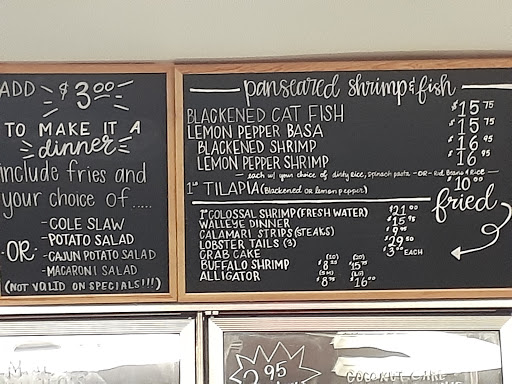 ADD $3.00
TO MAKE IT A
dinner
include fries and
your choice of.....
- COLE SLAW
- POTATO SALAD
-OR- - CAJUN POTATO SALAD
- MACARONI SALAD
(NOT VALID ON SPECIALS!!!)
pan seared shrimp & fish
BLACKENED CAT FISH $15.75
LEMON PEPPER BASA $15.75
BLACKENED SHRIMP $16.95
LEMON PEPPER SHRIMP $16.95
each w/ your choice of dirty Rice, Spinach pasta -OR- Red Beans & Rice
TILAPIA (Blackened OR lemon pepper) $10.00
fried
COLOSSAL SHRIMP (FRESH WATER) $21.00
WALLEYE DINNER $15.95
CALAMARI STRIPS (STEAKS)
LOBSTER TAILS (3) $29.50
CRAB CAKE EACH
BUFFALO SHRIMP
ALLIGATOR $16.00
.95
COCONUT CAKE